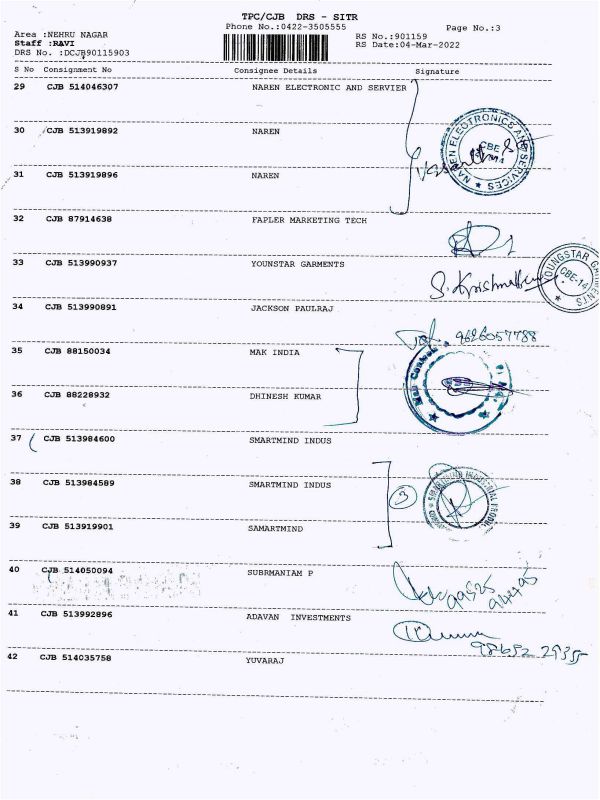 TPC/CJB DRS - SITR
Phone No.:0422-3505555
Page No.:3
Area :NEHRU NAGAR
RS No.:901159
Staff :RAVI
RS Date:04-Mar-2022
DRS No. :DCJB90115903
S No Consignment No Consignee Details Signature
29 CJB 514046307 NAREN ELECTRONIC AND SERVIER
30 CJB 513919892 NAREN
NAREN ELECTRONICS AND SERVICES
CBE
31 CJB 513919896 NAREN
32 CJB 87914638 FAPLER MARKETING TECH
33 CJB 513990937 YOUNSTAR GARMENTS
CBE-14
34 CJB 513990891 JACKSON PAULRAJ
9626057788
35 CJB 88150034 MAK INDIA
36 CJB 88228932 DHINESH KUMAR
37 CJB 513984600 SMARTMIND INDUS
38 CJB 513984589 SMARTMIND INDUS
3
39 CJB 513919901 SAMARTMIND
40 CJB 514050094 SUBRMANIAM P
41 CJB 513992896 ADAVAN INVESTMENTS
42 CJB 514035758 YUVARAJ